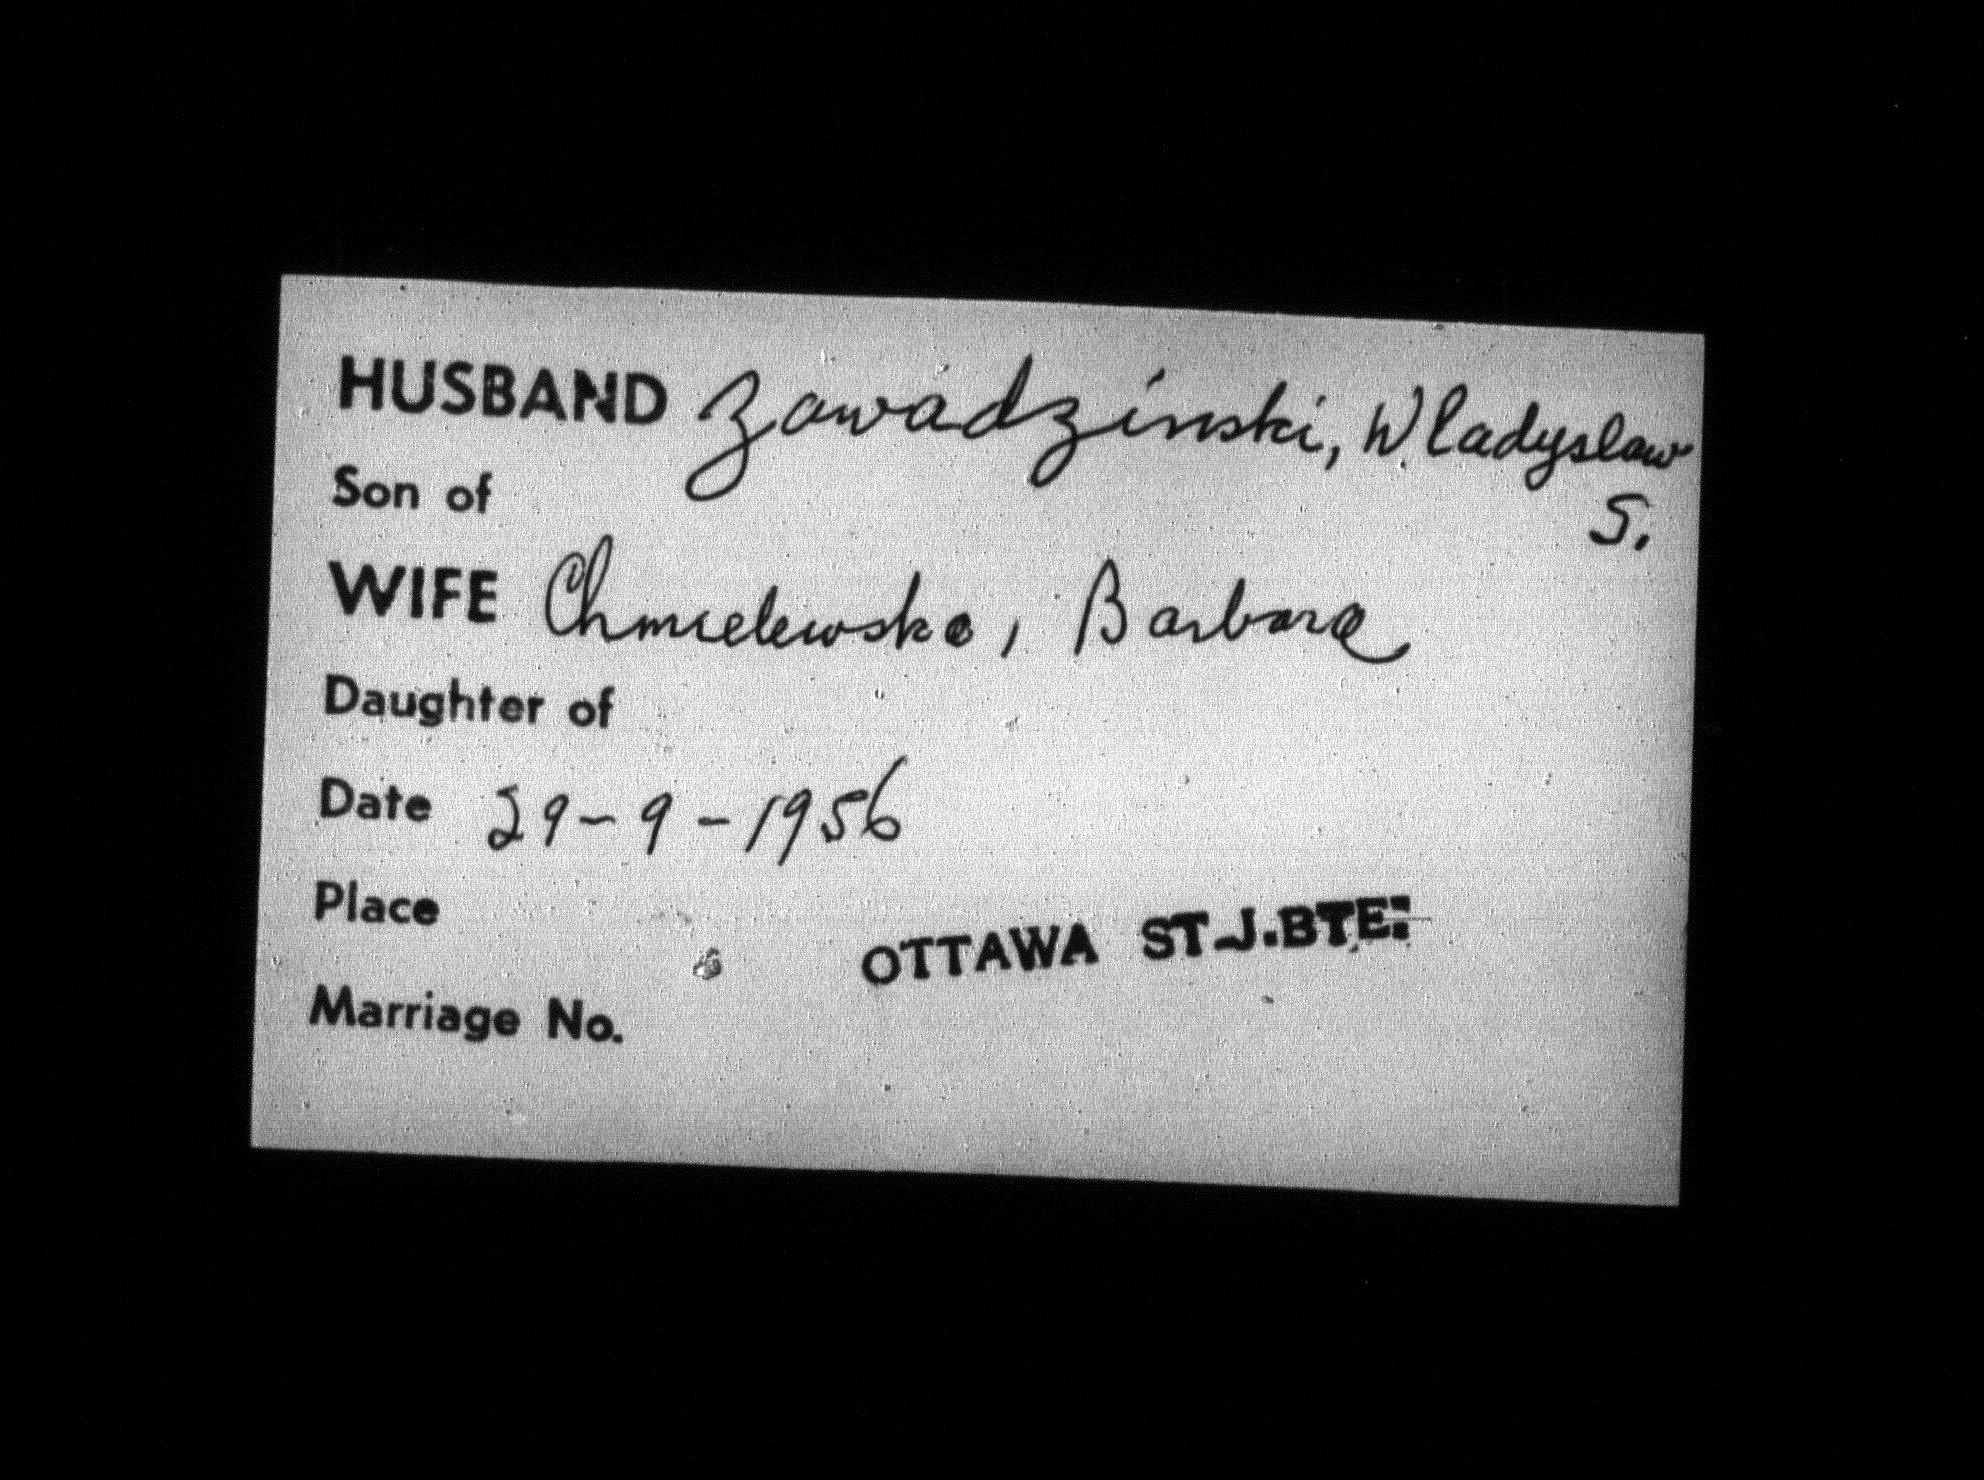 HUSBAND Zawadzinski, Wladyslaw
S.
Son of
WIFE Chmielewska, Barbara
Daughter of
Date 29-9-1956
Place
OTTAWA ST-J.BTE.
Marriage No.